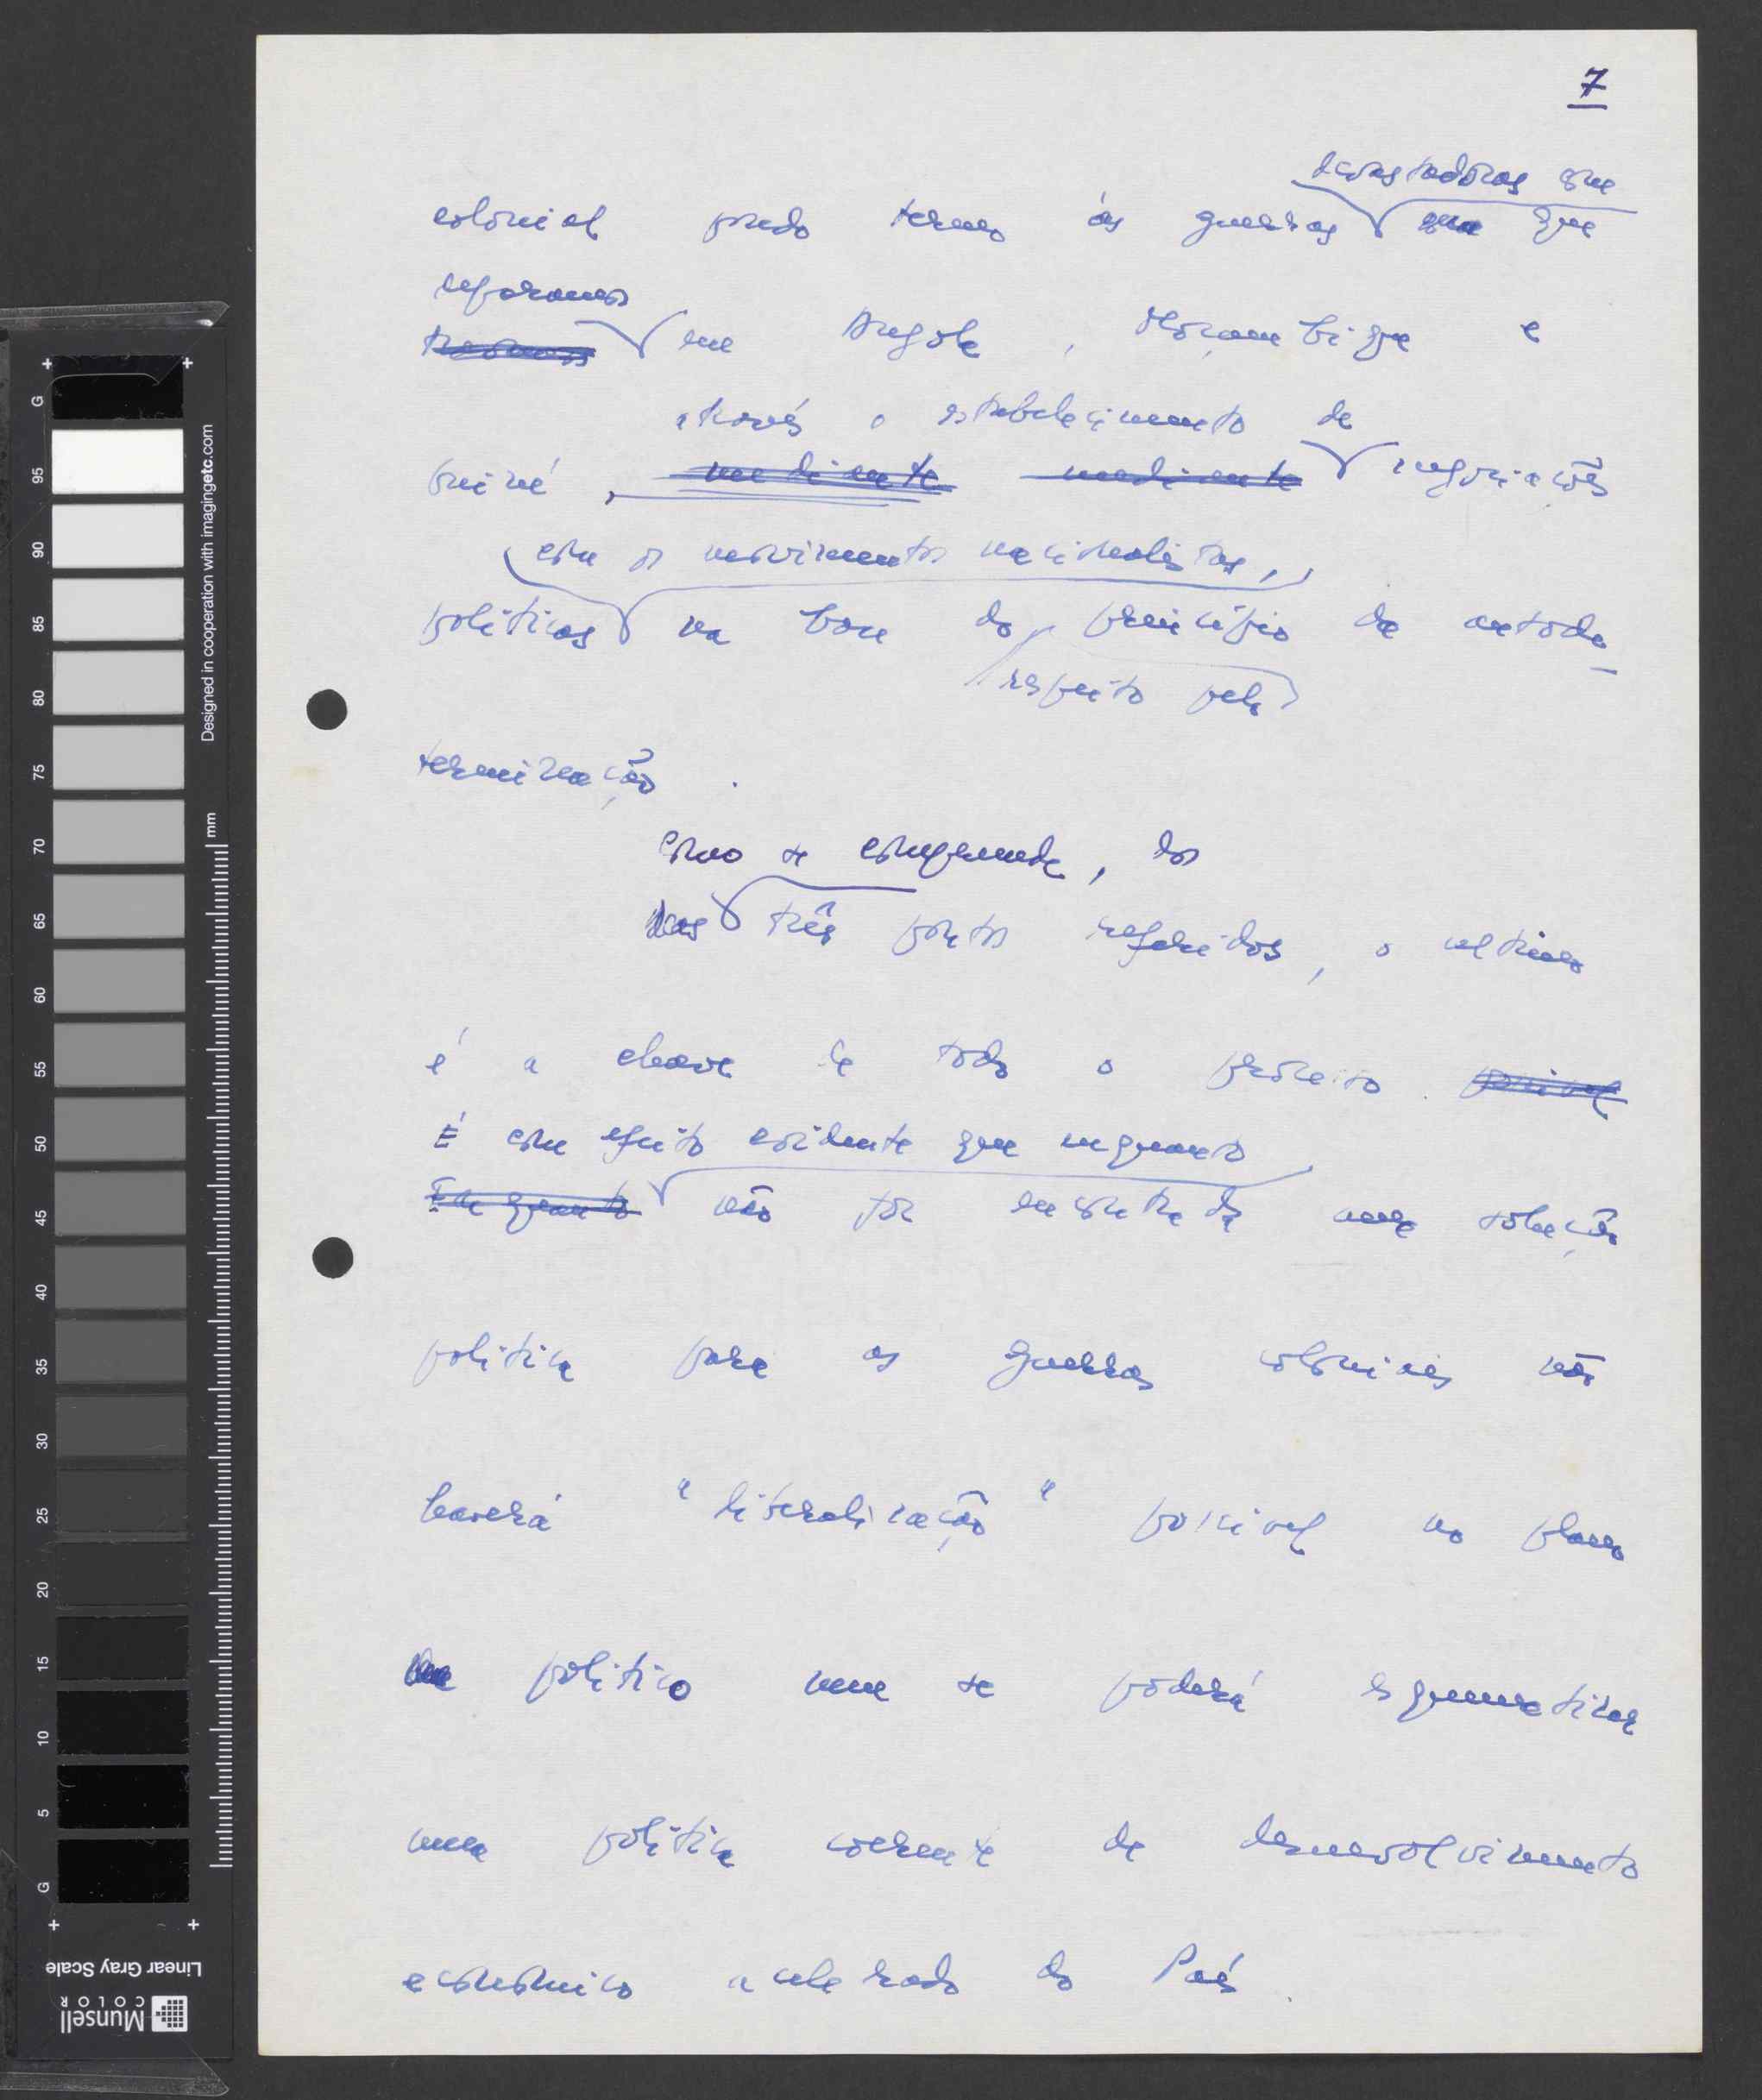 7
devastadoras que
colonial pondo termo às guerras que
em Angola, Moçambique e
através o estabelecimento de
Guiné, mediante mediante negociações
com os movimentos nacionalistas,
políticas na base do princípio da autode
respeito pela
terminação.
como se compreende, dos
três pontos referidos, o ultimo
é a chave de todo o processo.
É com efeito evidente que enquanto
Enquanto não for encontrada uma solução
politica para as guerras coloniais não
haverá "liberalização" possivel no plano
politico nem se poderá esquematizar
uma politica coerente de desenvolvimento
economico acelerado do País.
G
95
90
85
80
75
70
65
60
55
50
45
40
35
30
25
20
15
10
5
G
mm
Designed in cooperation with imagingetc.com
Linear Gray Scale
Munsell
COLOR